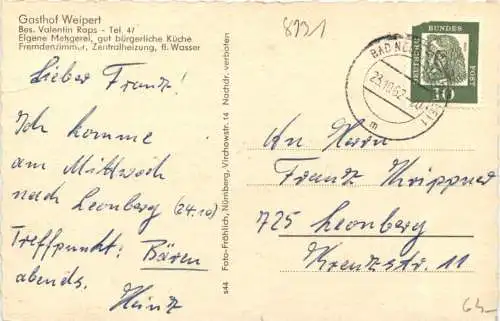 Gasthof Weipert
Bes. Valentin Raps - Tel. 47
Eigene Metzgerei, gut bürgerliche Küche
Fremdenzimmer, Zentralheizung, fl. Wasser
8931
Lieber Frantz!
Ich komme
am Mittwoch
nach Leonberg (24.10)
Treffpunkt: Bären
abends.
Heinz
s44 Foto-Fröhlich, Nürnberg, Virchowstr. 14 Nachdr. verboten
BAD
23.10.62
m
DEUTSCHE
BUNDES
POST
10
An Herrn
Frantz Krippner
725 Leonberg
Kreuzstr. 11